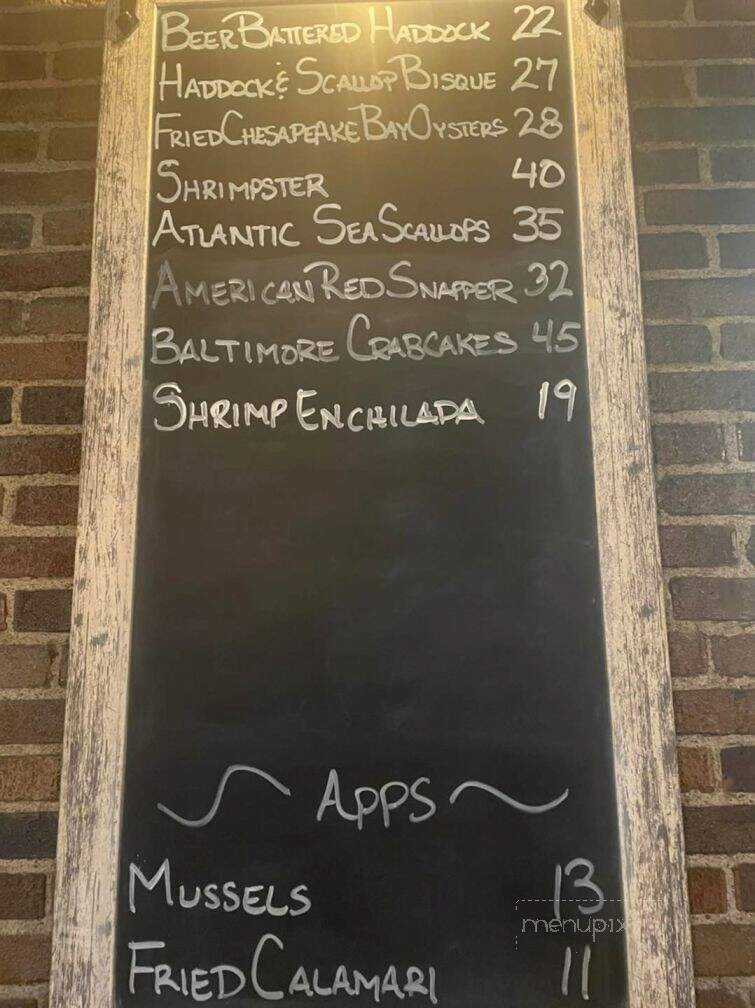 Beer Battered Haddock 22
Haddock & Scallop Bisque 27
Fried Chesapeake Bay Oysters 28
Shrimpster 40
Atlantic Sea Scallops 35
American Red Snapper 32
Baltimore Crabcakes 45
Shrimp Enchilada 19
~ Apps ~
Mussels 13
menupix
Fried Calamari 11